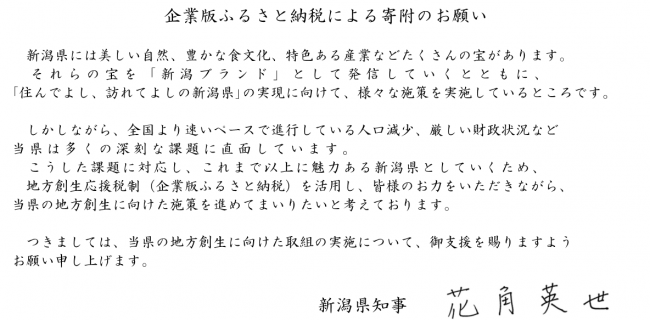 企業版ふるさと納税による寄附のお願い
新潟県には美しい自然、豊かな食文化、特色ある産業などたくさんの宝があります。
それらの宝を「新潟ブランド」として発信していくとともに、
「住んでよし、訪れてよしの新潟県」の実現に向けて、様々な施策を実施しているところです。
しかしながら、全国より速いペースで進行している人口減少、厳しい財政状況など
当県は多くの深刻な課題に直面しています。
こうした課題に対応し、これまで以上に魅力ある新潟県としていくため、
地方創生応援税制（企業版ふるさと納税）を活用し、皆様のお力をいただきながら、
当県の地方創生に向けた施策を進めてまいりたいと考えております。
つきましては、当県の地方創生に向けた取組の実施について、御支援を賜りますよう
お願い申し上げます。
新潟県知事　花角英世